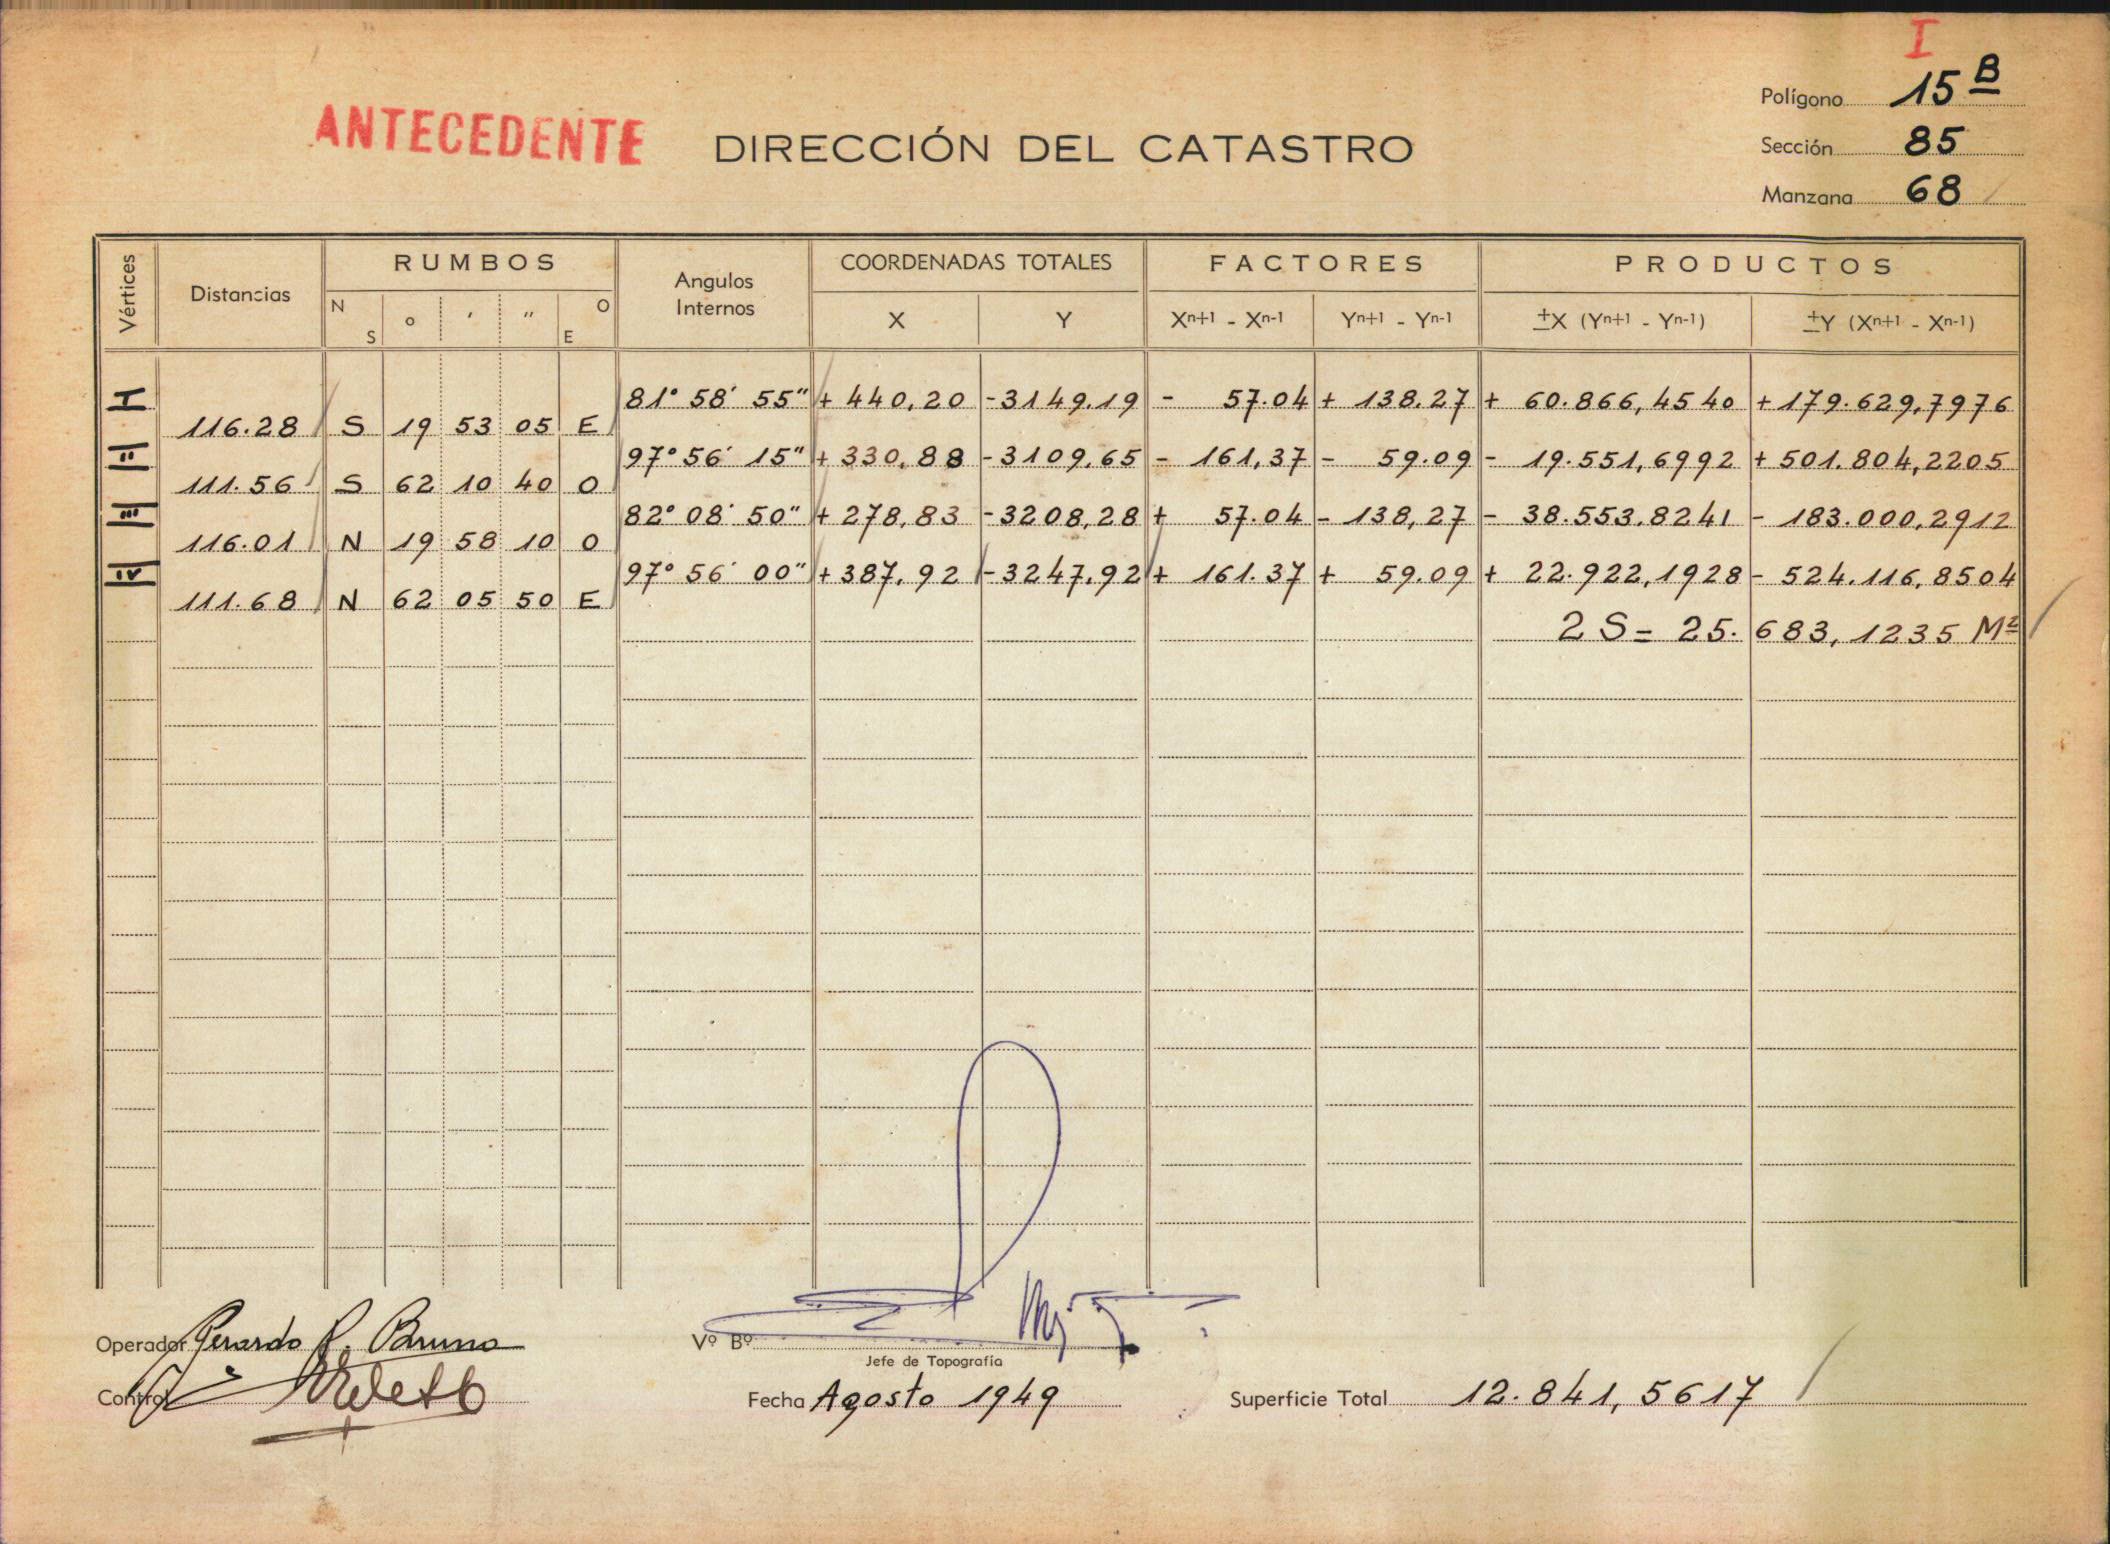 I
Polígono 15 B
ANTECEDENTE DIRECCIÓN DEL CATASTRO
Sección 85
Manzana 68
Vértices Distancias RUMBOS Angulos Internos COORDENADAS TOTALES FACTORES PRODUCTOS
N S ° ′ ″ O E X Y Xn+1 - Xn-1 Yn+1 - Yn-1 ±X (Yn+1 - Yn-1) ±Y (Xn+1 - Xn-1)
I 81° 58′ 55″ + 440,20 -3149.19 - 57.04 + 138.27 + 60.866,4540 + 179.629,7976
116.28 S 19 53 05 E
II 97° 56′ 15″ + 330,88 -3109,65 - 161,37 - 59.09 - 19.551,6992 + 501.804,2205
111.56 S 62 10 40 O
III 82° 08′ 50″ + 278,83 -3208,28 + 57.04 - 138,27 - 38.553.8241 - 183.000,2912
116.01 N 19 58 10 O
IV 97° 56′ 00″ + 387,92 -3247,92 + 161.37 + 59.09 + 22.922,1928 - 524.116,8504
111.68 N 62 05 50 E
2 S = 25.683,1235 M2
Operador Gerardo R. Bruno
Vº Bº
Jefe de Topografía
Control
Fecha Agosto 1949
Superficie Total 12.841,5617